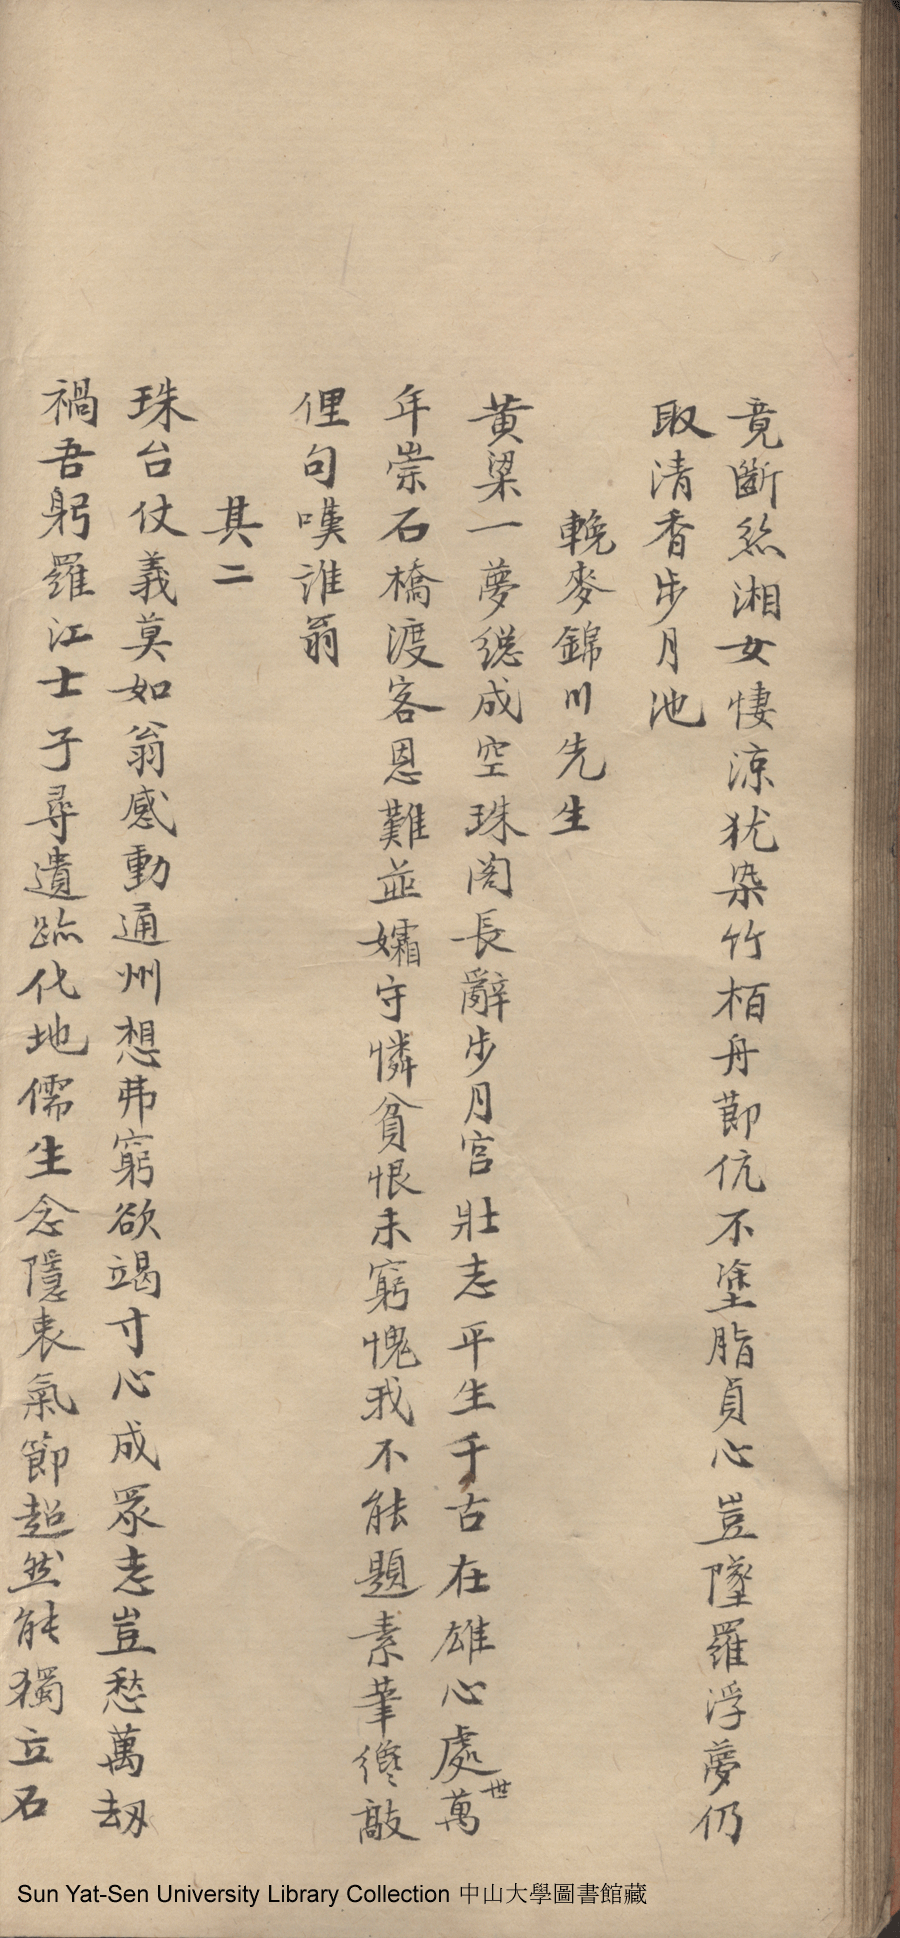 竟斷絲湘女悽涼犹染竹栢舟節伉不塗脂貞心豈墜羅浮夢仍
取清香步月池
輓麥錦川先生
黄梁一夢総成空珠阁長辭步月宫壯志平生千古在雄心處世萬
年崇石橋渡客恩難並孀守憐貧恨未窮愧我不能題素筆儘敲
俚句嘆誰翁
其二
珠台仗義莫如翁感動通州想弗窮欲竭寸心成眾志豈愁萬劫
禍吾躬羅江士子尋遺跡化地儒生念隱衷氣節超然能獨立石
Sun Yat-Sen University Library Collection 中山大學圖書館藏